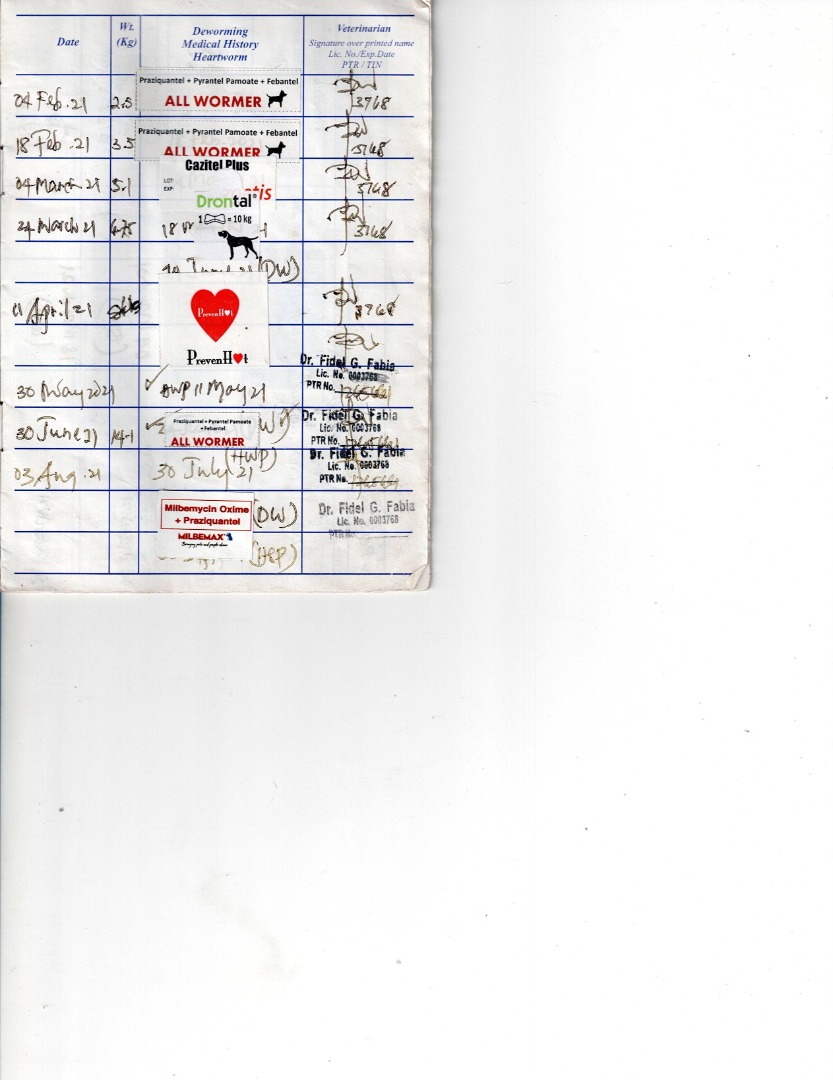 Date
Wt.
(Kg)
Deworming
Medical History
Heartworm
Veterinarian
Signature over printed name
Lic. No./Exp.Date
PTR / TIN
04 Feb. 21
2.5
Praziquantel + Pyrantel Pamoate + Febantel
ALL WORMER
3768
18 Feb. 21
3.5
Praziquantel + Pyrantel Pamoate + Febantel
ALL WORMER
3768
04 March 21
5.1
Cazitel Plus
LOT
EXP
tis
Drontal
3768
24 March 21
6.75
1 = 10 kg
18
3768
(DW)
11 April 21
PrevenH♥t
PrevenH♥t
3768
30 May 2021
HWP 11 May 21
Dr. Fidel G. Fabia
Lic. No. 0003768
PTR No.
30 June 21
14.1
Praziquantel + Pyrantel Pamoate
+ Febantel
ALL WORMER
Dr. Fidel G. Fabia
Lic. No. 0003768
PTR No.
03 Aug. 21
(HWP)
30 July 21
Dr. Fidel G. Fabia
Lic. No. 0003768
PTR No.
Milbemycin Oxime
+ Praziquantel
MILBEMAX
(DW)
Dr. Fidel G. Fabia
Lic. No. 0003768
PTR No.